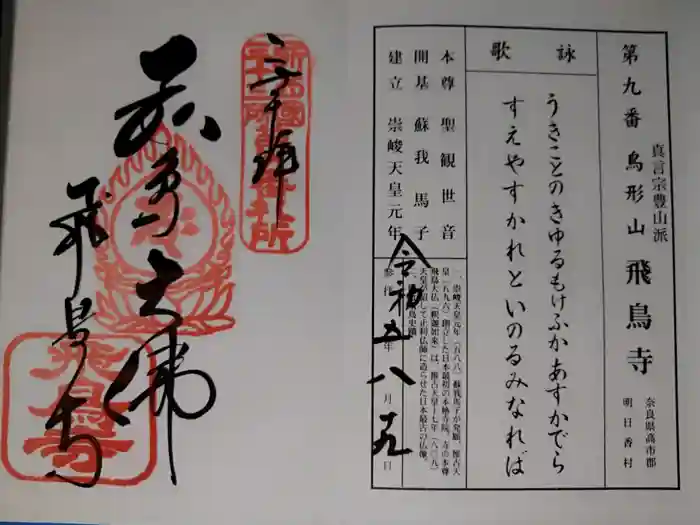 第九番 鳥形山 飛鳥寺
真言宗豊山派
奈良県高市郡
明日香村
詠歌
うきことのきゆるもけふかあすかでら
すえやすかれといのるみなれば
本尊 聖観世音
開基 蘇我馬子
建立 崇峻天皇元年
一、崇峻天皇元年(五八八)蘇我馬子が発願、推古天
皇(五九六)創立した日本最初の本格寺院。寺の本尊
飛鳥大仏(釈迦如来)は、推古天皇十七年(六〇九)
天皇が詔して止利仏師に造らせた日本最古の仏像。
令和五年八月十九日
奉拝
飛鳥大佛
飛鳥寺
飛鳥寺